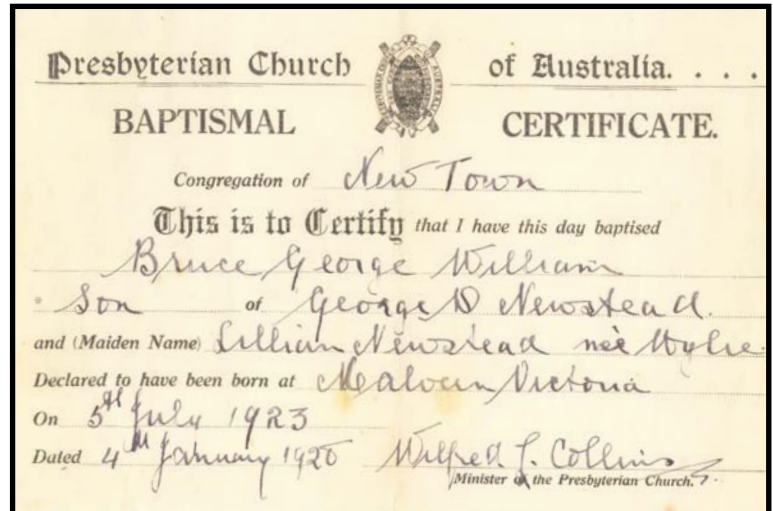 Presbyterian Church of Australia. . . .
BAPTISMAL CERTIFICATE.
Congregation of New Town
This is to Certify that I have this day baptised
Bruce George William
Son of George D Newstead.
and (Maiden Name) Lillian Newstead neè Wylie.
Declared to have been born at Malvern Victoria
On 5th July 1923
Dated 4th January
Wilfred J. Collins
Minister of the Presbyterian Church.